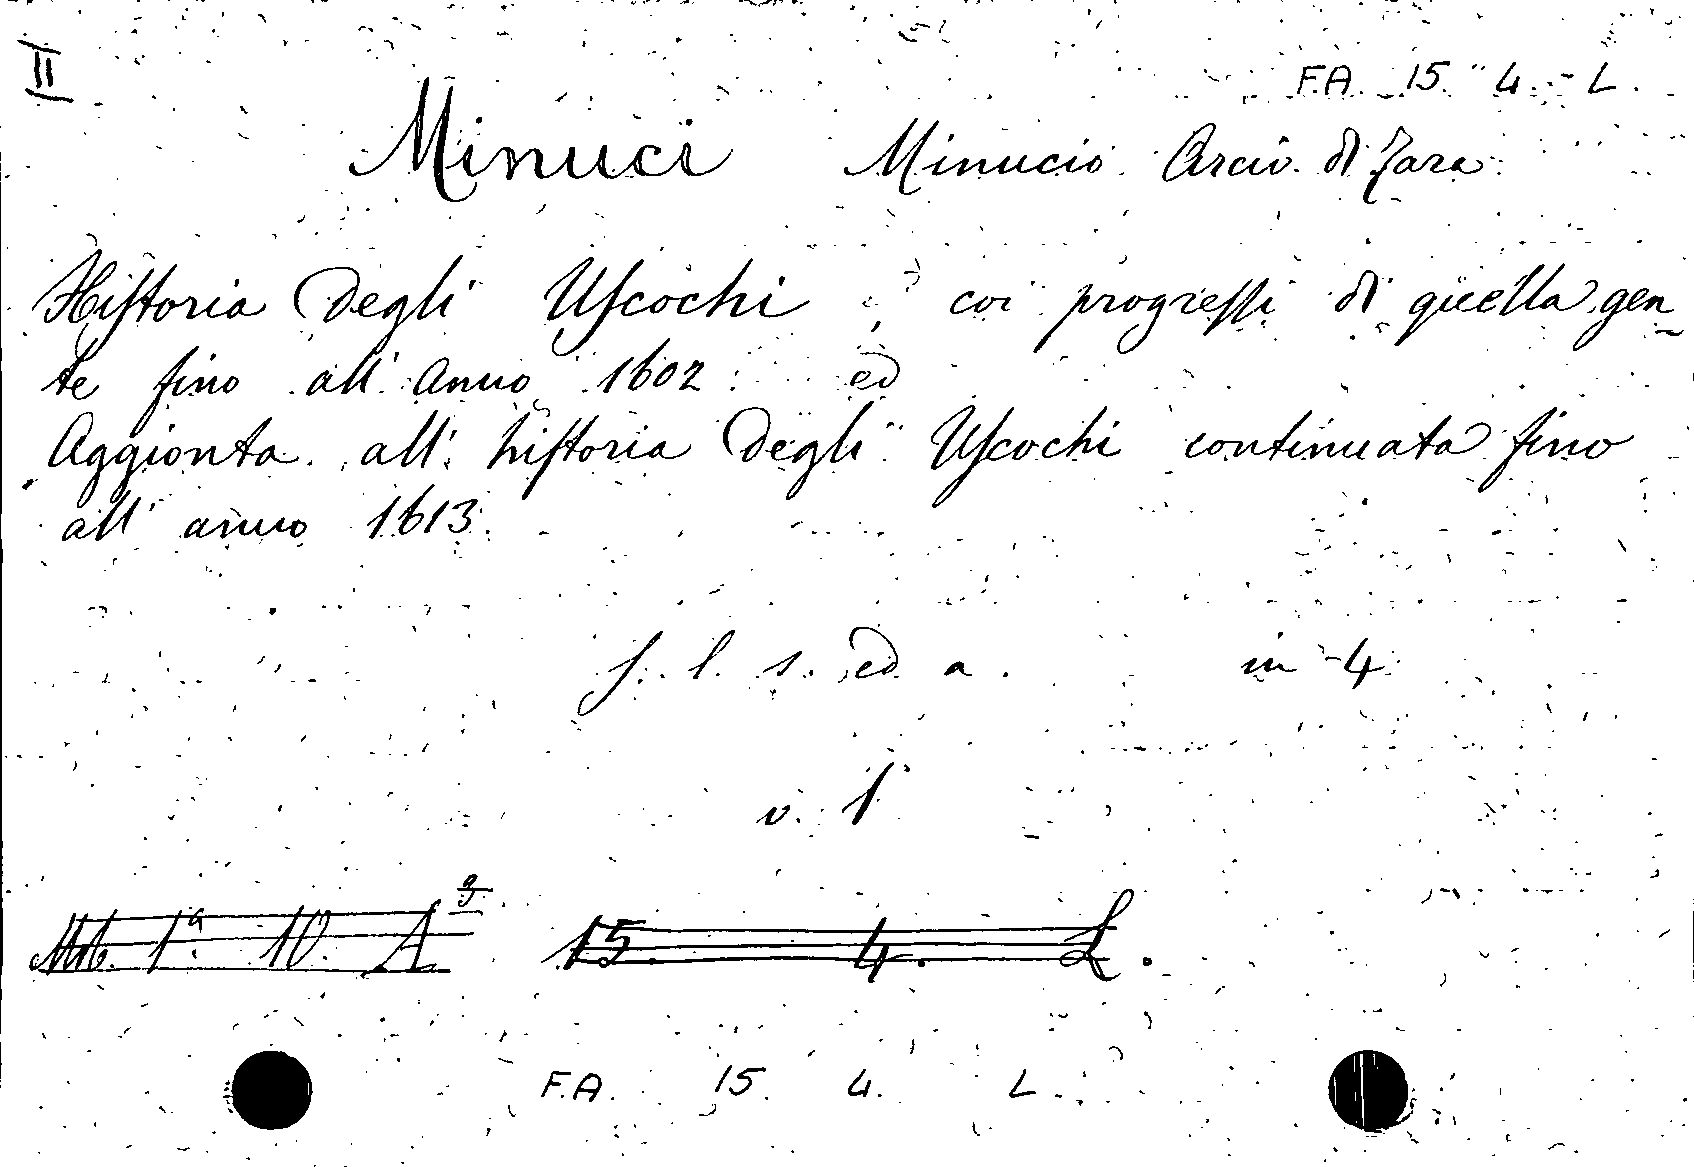 II
F.A. 15. 4. L.
Minuci Minucio Arciv. di Zara
Hiſtoria degli Uſcochi, coi progreſſi di quella gen
te fino all' Anno 1602 ed
Aggionta all' hiſtoria degli Uſcochi continuata fino
all' anno 1613.
ſ. l. s. ed a. in 4
v. 1
1ª 10. A 3 15. 4. L.
F.A. 15. 4. L